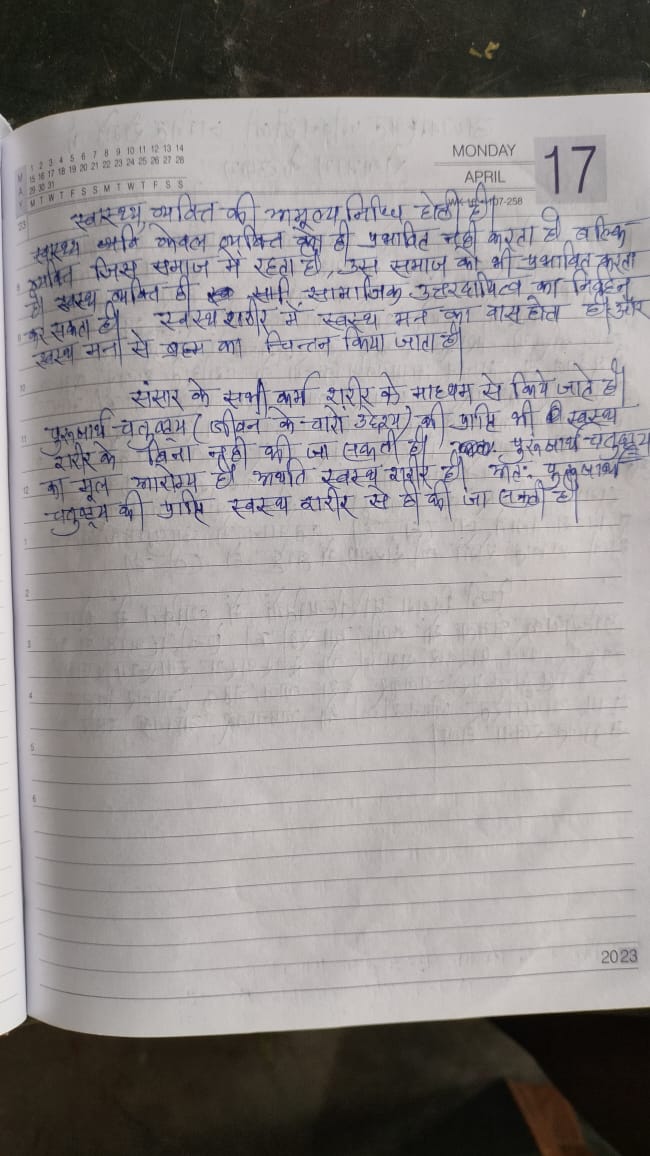 M 1 2 3 4 5 6 7 8 9 10 11 12 13 14
A 15 16 17 18 19 20 21 22 23 24 25 26 27 28
Y 29 30 31
M T W T F S S M T W T F S S
MONDAY
APRIL
17
WK-16 • 107-258
स्वास्थ्य, व्यक्ति की अमूल्य निधि होती है।
स्वास्थ्य केवल व्यक्ति को ही प्रभावित नहीं करता है बल्कि
व्यक्ति जिस समाज में रहता है, उस समाज को भी प्रभावित करता
है। स्वस्थ व्यक्ति ही सामाजिक उत्तरदायित्व का निर्वहन
कर सकता है। स्वस्थ शरीर में स्वस्थ मन का वास होता है। और
स्वस्थ मन से ब्रह्म का चिन्तन किया जाता है।
संसार के सभी कर्म शरीर के माध्यम से किये जाते है।
पुरूषार्थ चतुष्ट्य (जीवन के चारो उद्देश्य) की प्राप्ति भी स्वस्थ
शरीर के बिना नही की जा सकती है। पुरूषार्थ चतुष्ट्य
का मूल आरोग्य है। अर्थात स्वस्थ शरीर है। अतः पुरूषार्थ
चतुष्ट्य की प्राप्ति स्वस्थ शरीर से ही की जा सकती है।
10
11
12
1
2
3
4
5
6
2023